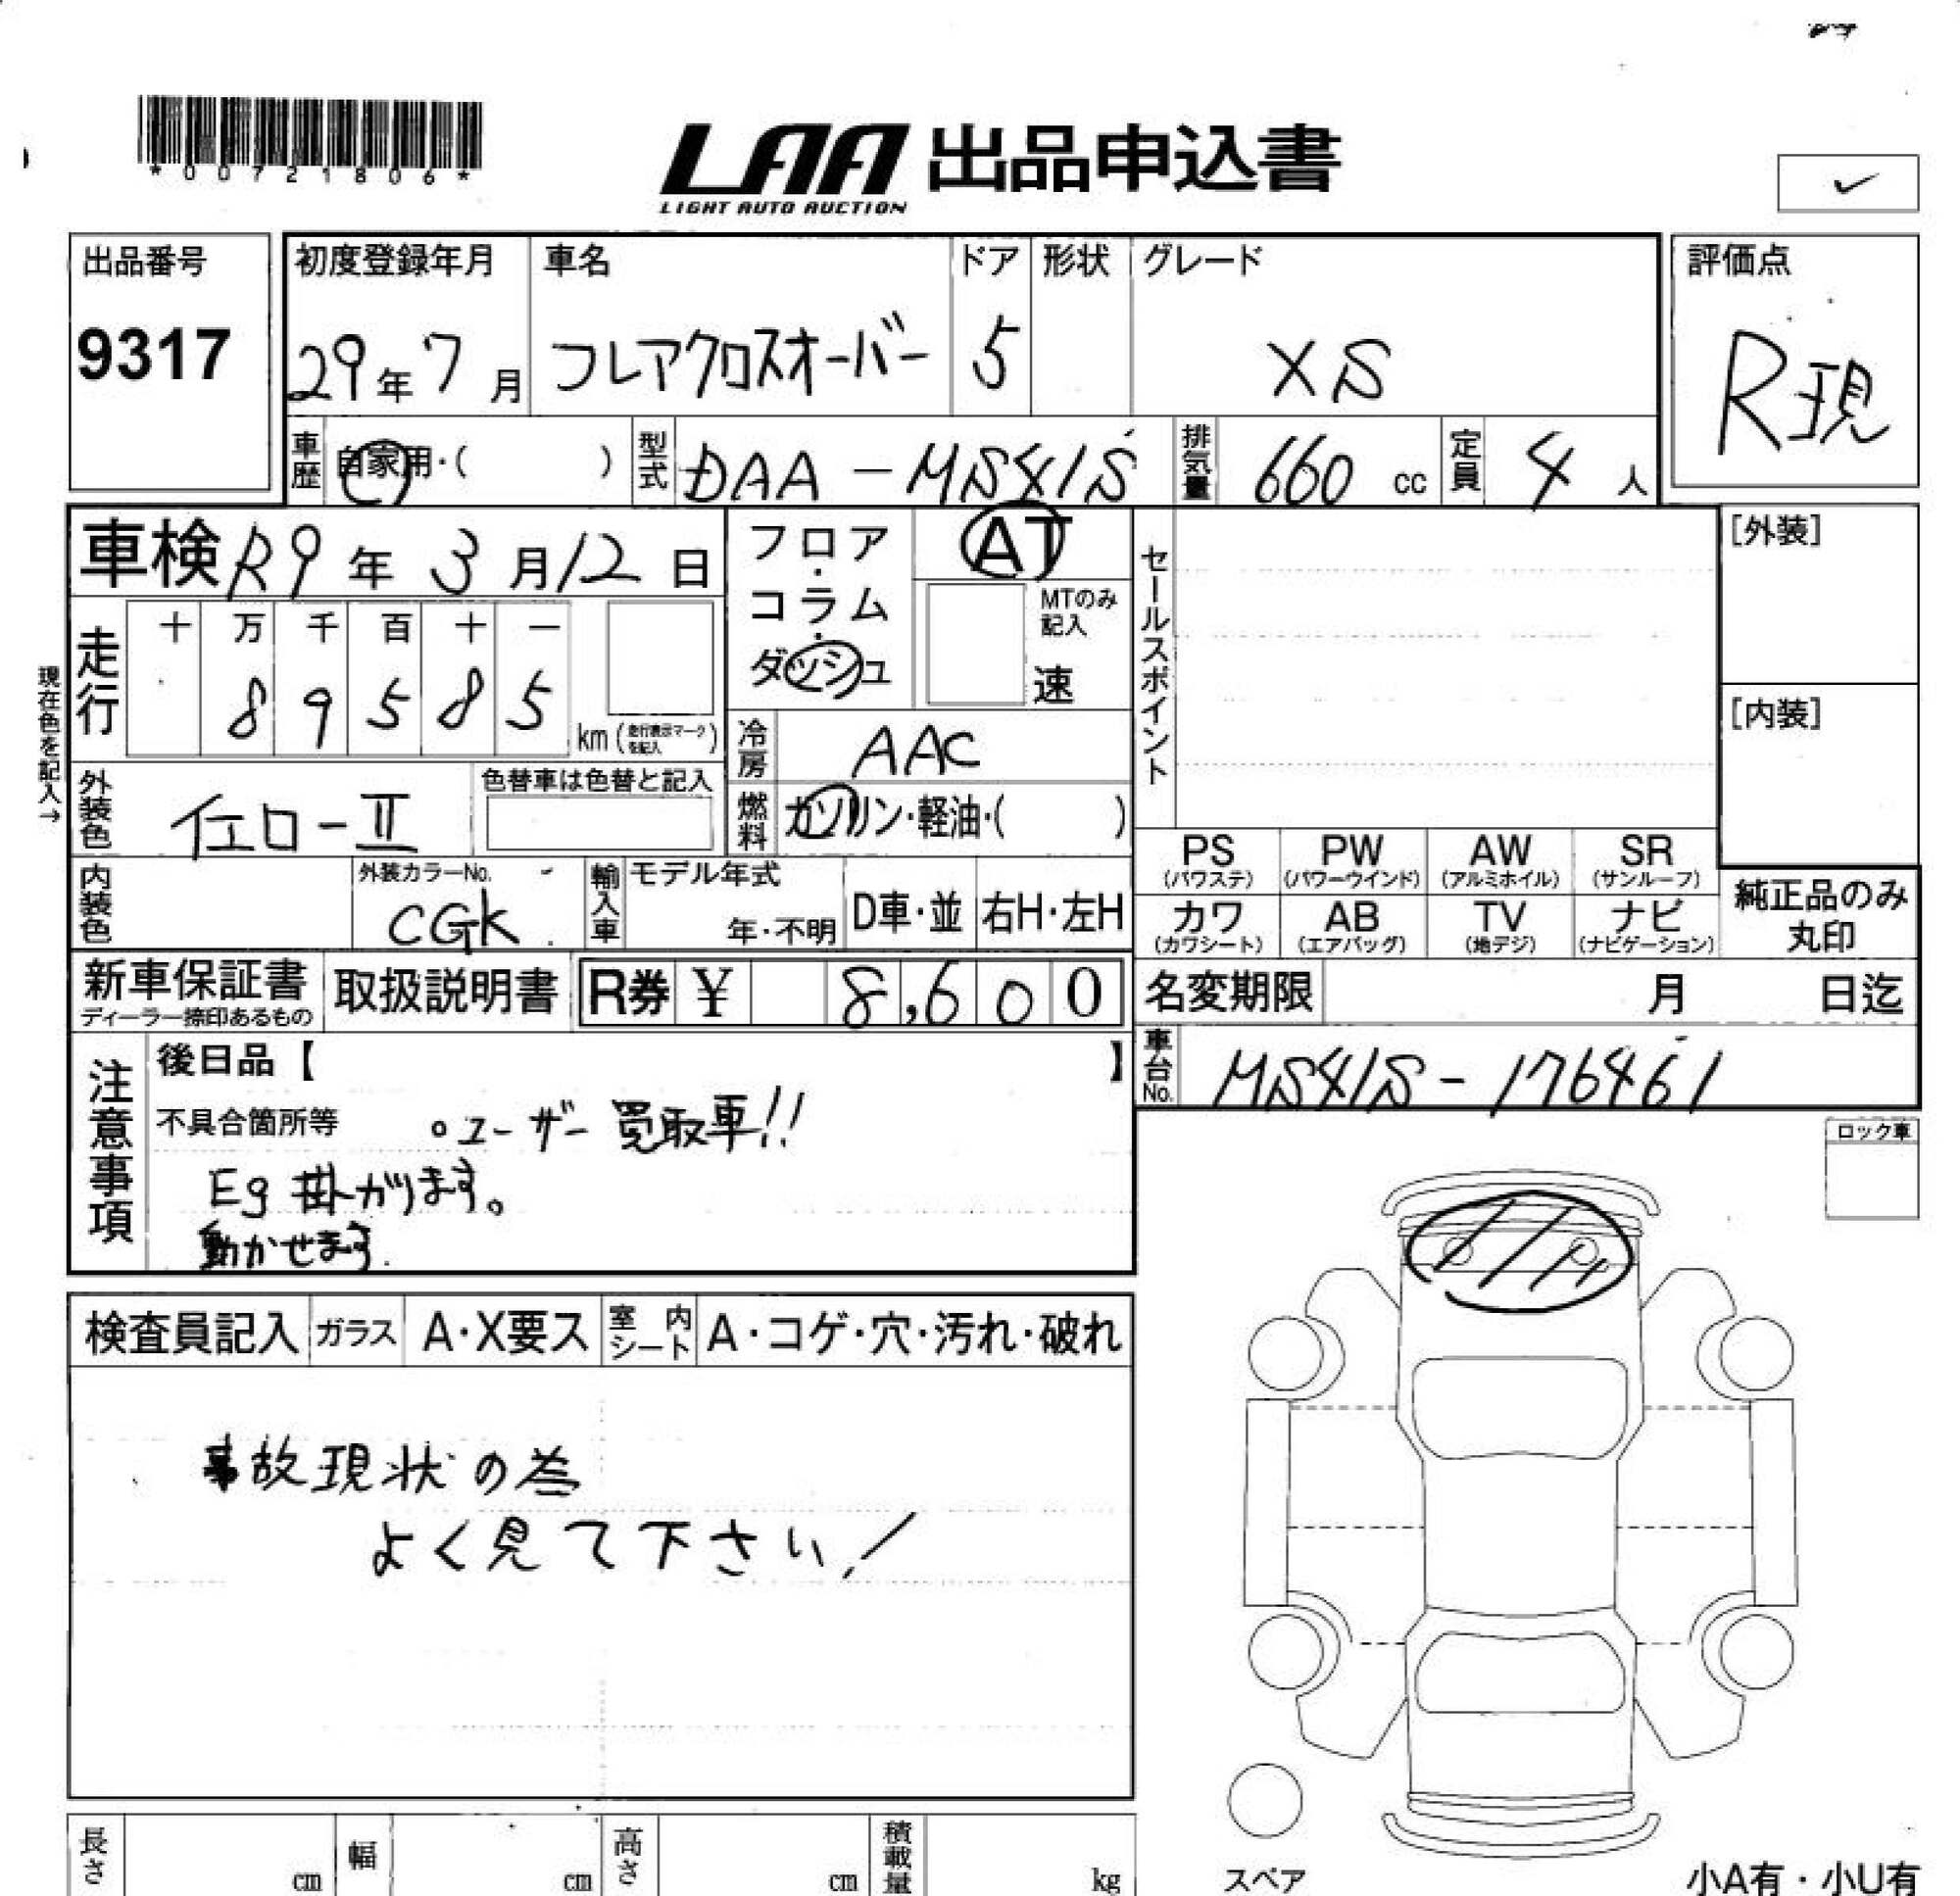 *00721806*
LAA 出品申込書
LIGHT AUTO AUCTION
出品番号
9317
初度登録年月
29年7月
車名
フレアクロスオーバー
ドア
5
形状
グレード
XS
評価点
R現
車歴 自家用・( )
型式 DAA-MS41S
排気量 660 cc
定員 4人
車検 R9年3月12日
フロア・コラム・ダッシュ
AT
MTのみ記入
速
セールスポイント
[外装]
[内装]
現在色を記入→
走行
十 万 千 百 十 一
8 9 5 8 5
km(走行表示マークを記入)
冷房 AAC
外装色 イエロ-II
色替車は色替と記入
燃料 ガソリン・軽油・( )
内装色
外装カラーNo.
CGK
輸入車
モデル年式
年・不明
D車・並
右H・左H
PS
(パワステ)
PW
(パワーウインド)
AW
(アルミホイル)
SR
(サンルーフ)
カワ
(カワシート)
AB
(エアバッグ)
TV
(地デジ)
ナビ
(ナビゲーション)
純正品のみ
丸印
新車保証書
ディーラー捺印あるもの
取扱説明書
R券 ¥ 8,600
名変期限 月 日迄
車台No. MS41S-176461
注意事項
後日品【 】
不具合箇所等 。ユーザー買取車!!
Eg掛かります。
動かせます.
ロック車
検査員記入
ガラス
A・X要ス
室内シート
A・コゲ・穴・汚れ・破れ
事故現状の為
よく見て下さい!
長さ cm
幅 cm
高さ cm
積載量 kg
スペア
小A有・小U有